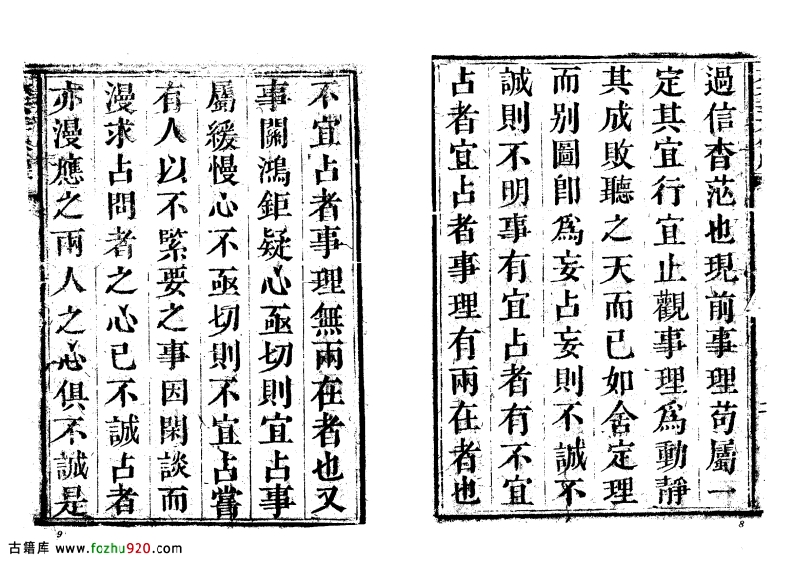 過信杳茫也現前事理苟屬一
定其宜行宜止觀事理爲動靜
其成敗聽之天而已如舍定理
而别圖卽爲妄占妄則不誠不
誠則不明事有宜占者有不宜
占者宜占者事理有兩在者也
8
不宜占者事理無兩在者也又
事關鴻鉅疑心亟切則宜占事
屬緩慢心不亟切則不宜占嘗
有人以不緊要之事因閑談而
漫求占問者之心已不誠占者
亦漫應之兩人之心俱不誠是
9
古籍库 www.fozhu920.com